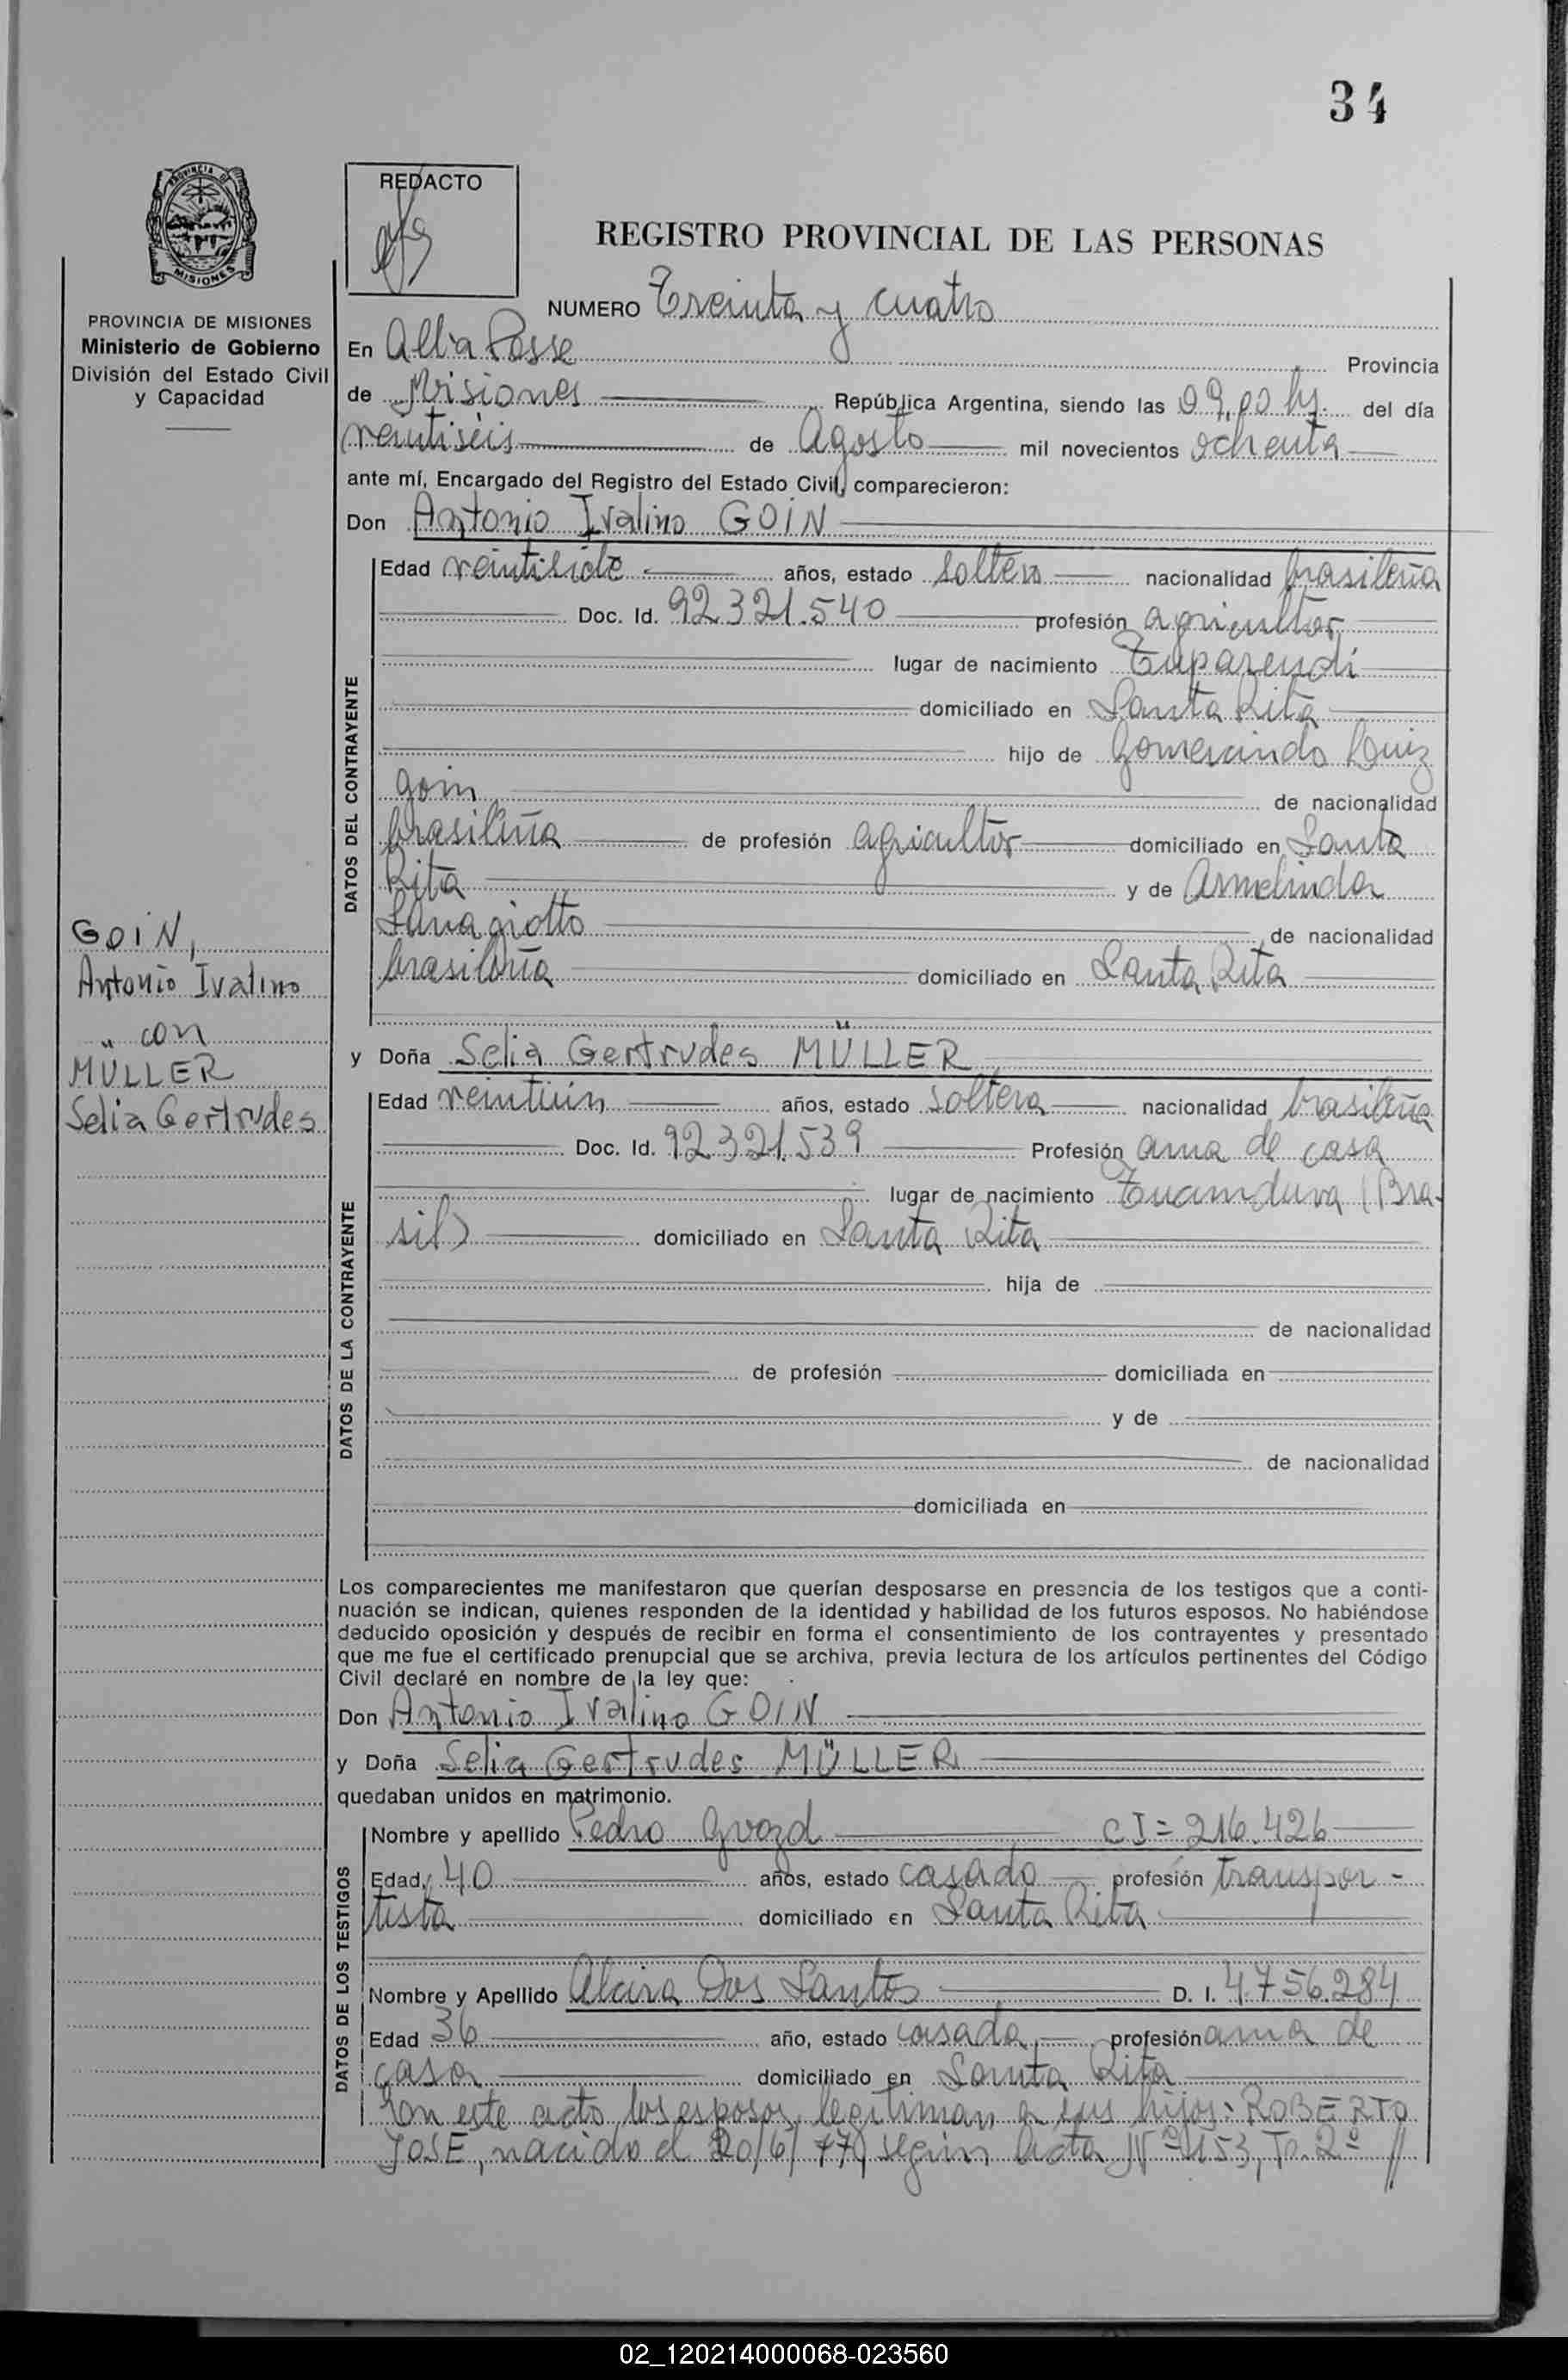 34
PROVINCIA DE
MISIONES
REDACTO
REGISTRO PROVINCIAL DE LAS PERSONAS
PROVINCIA DE MISIONES
Ministerio de Gobierno
División del Estado Civil
y Capacidad
NUMERO Treinta y cuatro
En Alba Posse Provincia
de Misiones República Argentina, siendo las 09,00 hs. del día
veintiseis de Agosto mil novecientos ochenta
ante mí, Encargado del Registro del Estado Civil, comparecieron:
Don Antonio Ivalino GOIN
Edad veintisiete años, estado soltero nacionalidad brasileña
Doc. Id. 92.321.540 profesión agricultor
lugar de nacimiento Tuparendi
domiciliado en Santa Rita
hijo de Gomercindo Luiz
Goin de nacionalidad
brasileña de profesión agricultor domiciliado en Santa
Rita y de Armelinda
de nacionalidad
brasileña domiciliado en Santa Rita
DATOS DEL CONTRAYENTE
GOIN,
Antonio Ivalino
" con
MÜLLER
Selia Gertrudes
y Doña Selia Gertrudes MÜLLER
Edad veintiún años, estado soltera nacionalidad brasileña
Doc. Id. 92.321.539 Profesión ama de casa
lugar de nacimiento Tucunduva (Bra-
sil) domiciliado en Santa Rita
hija de
de nacionalidad
de profesión domiciliada en
y de
de nacionalidad
domiciliada en
DATOS DE LA CONTRAYENTE
Los comparecientes me manifestaron que querían desposarse en presencia de los testigos que a conti-
nuación se indican, quienes responden de la identidad y habilidad de los futuros esposos. No habiéndose
deducido oposición y después de recibir en forma el consentimiento de los contrayentes y presentado
que me fue el certificado prenupcial que se archiva, previa lectura de los artículos pertinentes del Código
Civil declaré en nombre de la ley que:
Don Antonio Ivalino GOIN
y Doña Selia Gertrudes MÜLLER
quedaban unidos en matrimonio.
Nombre y apellido Pedro Gvozd CI = 216.426
Edad 40 años, estado casado profesión transpor-
tista domiciliado en Santa Rita
Nombre y Apellido Alcira Dos Santos D. I. 4.756.284
Edad 36 año, estado casada profesión ama de
casa domiciliado en Santa Rita
DATOS DE LOS TESTIGOS
En este acto los esposos legitiman a sus hijos: ROBERTO
JOSE, nacido el 20/6/77, según acta Nº 153, To. 2º //
02_120214000068-023560